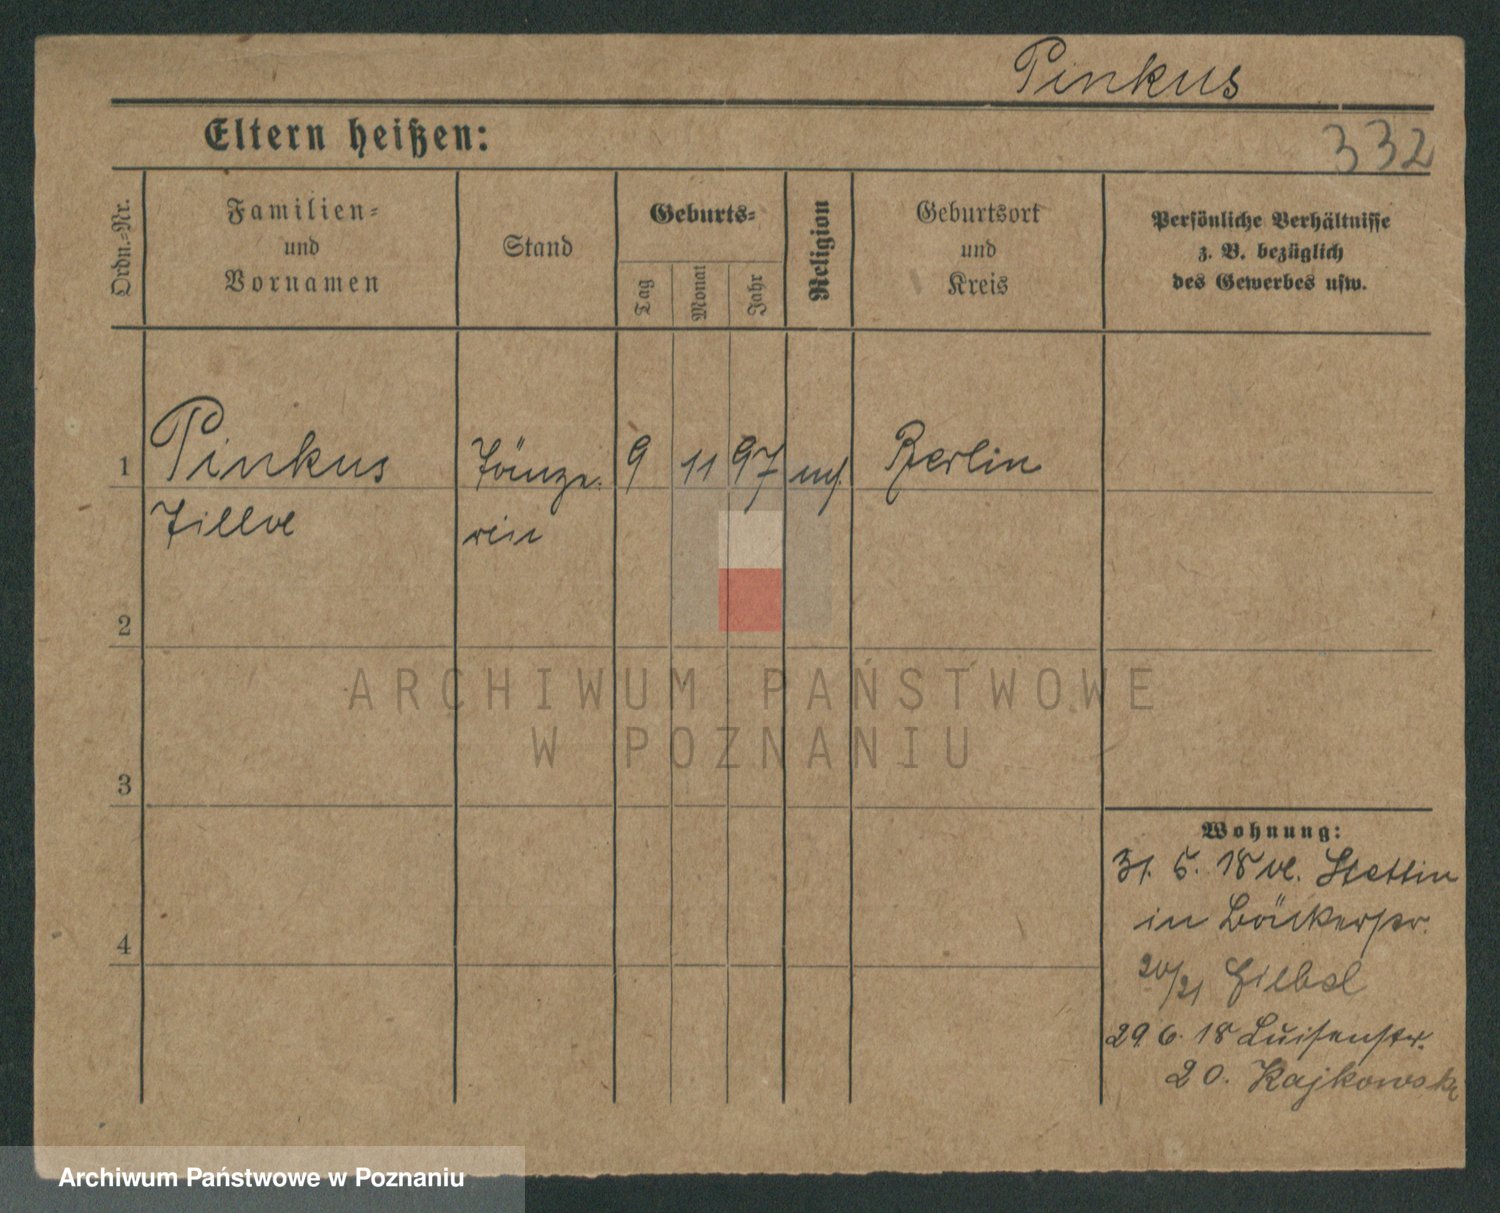 Pinkus
Eltern heißen:
332
Ordn.-Nr.
Familien- und Vornamen
Stand
Geburts-
Tag
Monat
Jahr
Religion
Geburtsort und Kreis
Persönliche Verhältnisse
z. B. bezüglich
des Gewerbes usw.
1 Pinkus Tänze- 9 11 97 Berlin
rin
2
3
4
ARCHIWUM PAŃSTWOWE
W POZNANIU
Wohnung:
31. 5. 18 Stettin
in Bäckerstr.
20/21
29. 6. 18 Luisenstr.
20. Kajkowski
Archiwum Państwowe w Poznaniu